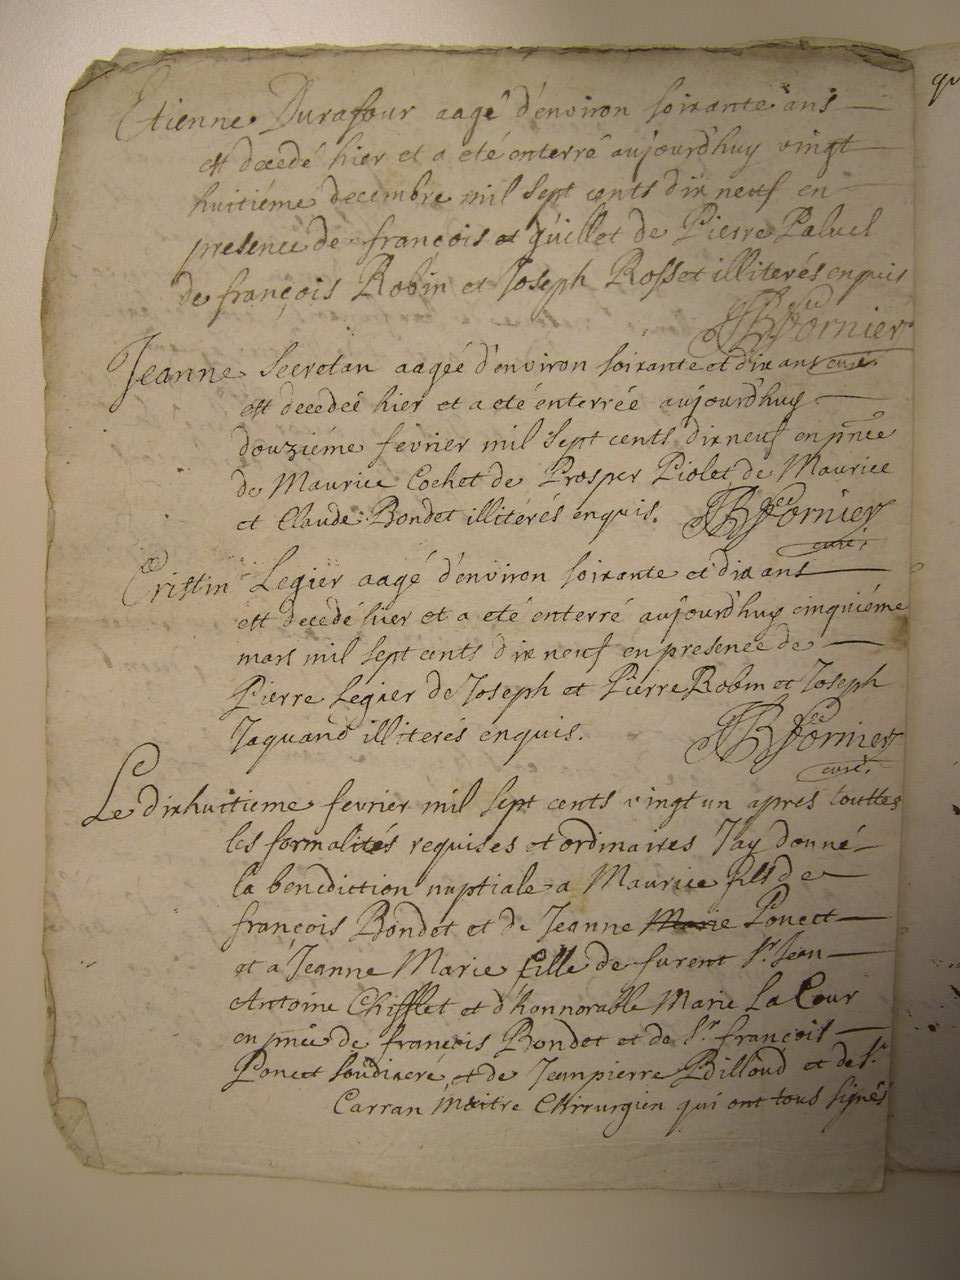 Etienne Durafour aagé d'environ soixante ans
est decedé hier et a eté enterré aujourd'huy vingt
huitiéme decembre mil sept cents dix neuf en
presence de françois et guillet de Pierre Paluel
de françois Robin et Joseph Rosset illiterés enquis
Fornier
curé
Jeanne Secretan aagée d'environ soixante et dix ans
est decedeé hier et a eté enterrée aujourd'huy
douziéme fevrier mil sept cents dix neuf en pñce
de Maurice Cochet de Prosper Piolet de Maurice
et Claude Bondet illitérés enquis. Fornier
curé.
Cristin Legier aagé d'environ soixante et dix ans
est decedé hier et a eté enterré aujourd'huy cinquiéme
mars mil sept cents dix neuf en presence de
Pierre Legier de Joseph et Pierre Robin et Joseph
Jaquand illiterés enquis. Fornier
curé.
Le dixhuitieme fevrier mil sept cents vingt un apres touttes
les formalités requises et ordinaires J'ay donné
la benediction nuptiale a Maurice fils de
françois Bondet et de Jeanne Marie Poncet
et a Jeanne Marie fille de furent Sr. Jean
Antoine Chifflet et d'honnorable Marie La Cour
en pñce de françois Bondet et de Sr. françois
Poncet soudiacre, et de Jeanpierre Billoud et de Sr.
Carran Maitre Chirurgien qui ont tous signés
qu